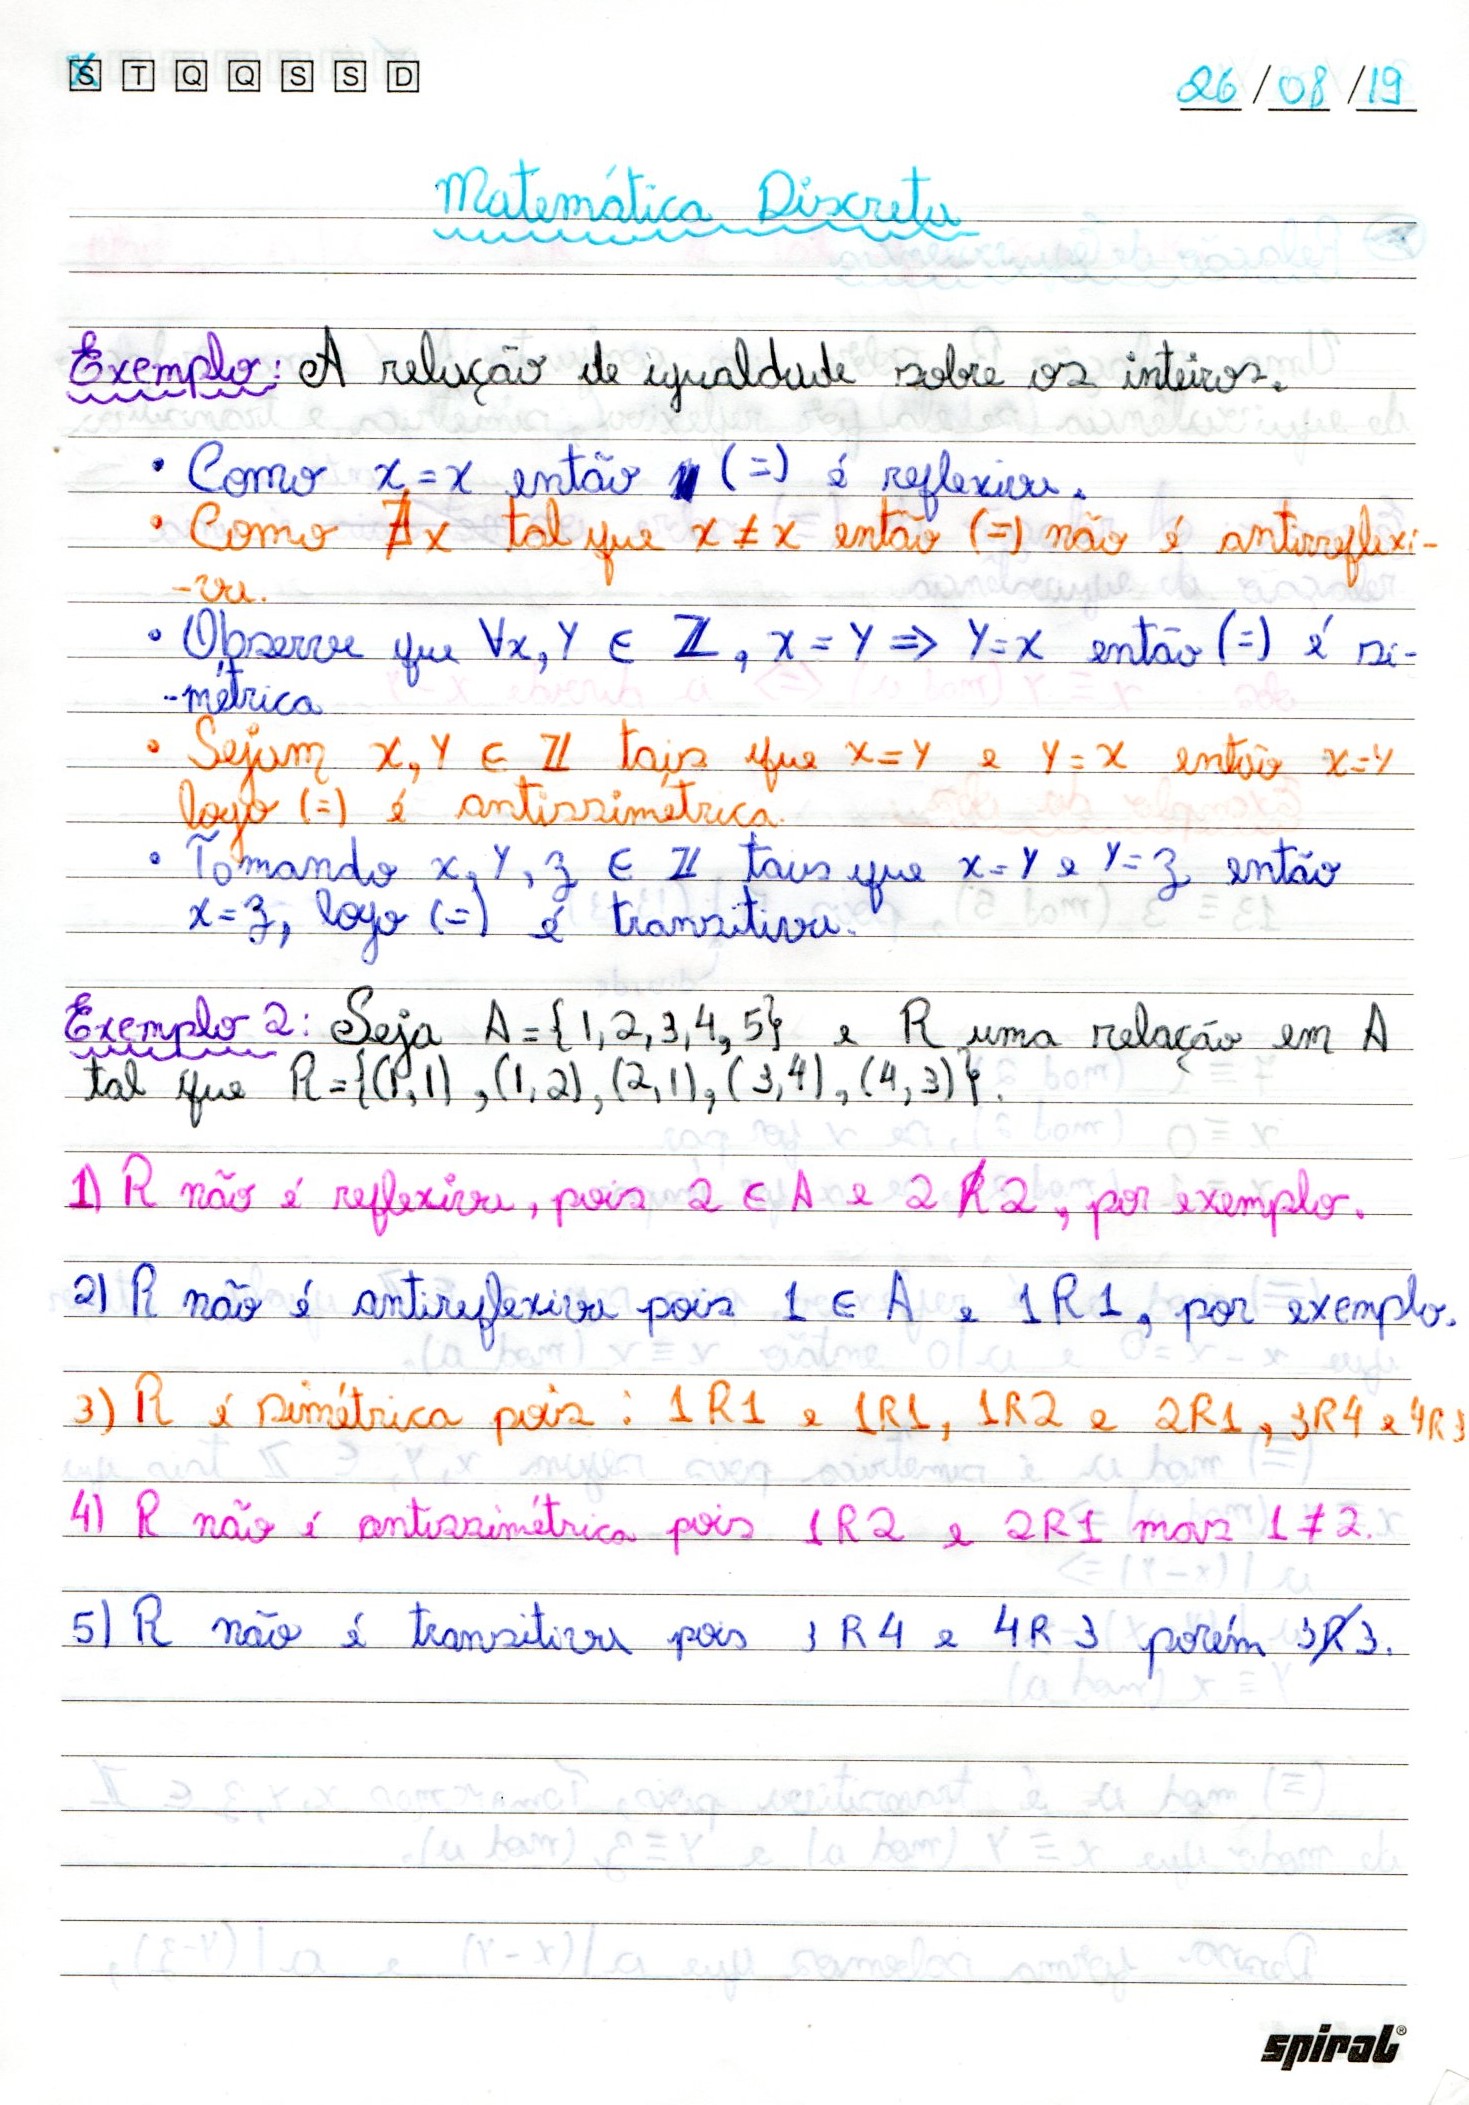 S T Q Q S S D
26/08/19
Matemática Discreta
Exemplo: A relação de igualdade sobre os inteiros.
• Como x = x então (=) é reflexiva.
• Como ∄x tal que x ≠ x então (=) não é antirreflexi-
-va.
• Observe que ∀x, y ∈ ℤ, x = y ⇒ y = x então (=) é si-
-métrica
• Sejam x, y ∈ ℤ tais que x = y e y = x então x = y
logo (=) é antissimétrica.
• Tomando x, y, z ∈ ℤ tais que x = y e y = z, então
x = z, logo (=) é transitiva.
Exemplo 2: Seja A = {1, 2, 3, 4, 5} e R uma relação em A
tal que R = {(1,1), (1,2), (2,1), (3,4), (4,3)}.
1) R não é reflexiva, pois 2 ∈ A e 2 R̸ 2, por exemplo.
2) R não é antireflexiva pois 1 ∈ A e 1 R 1, por exemplo.
3) R é simétrica pois: 1R1 e 1R1, 1R2 e 2R1, 3R4 e 4R3
4) R não é antissimétrica pois 1R2 e 2R1 mas 1 ≠ 2.
5) R não é transitiva pois 3R4 e 4R3 porém 3 R̸ 3.
spiral®